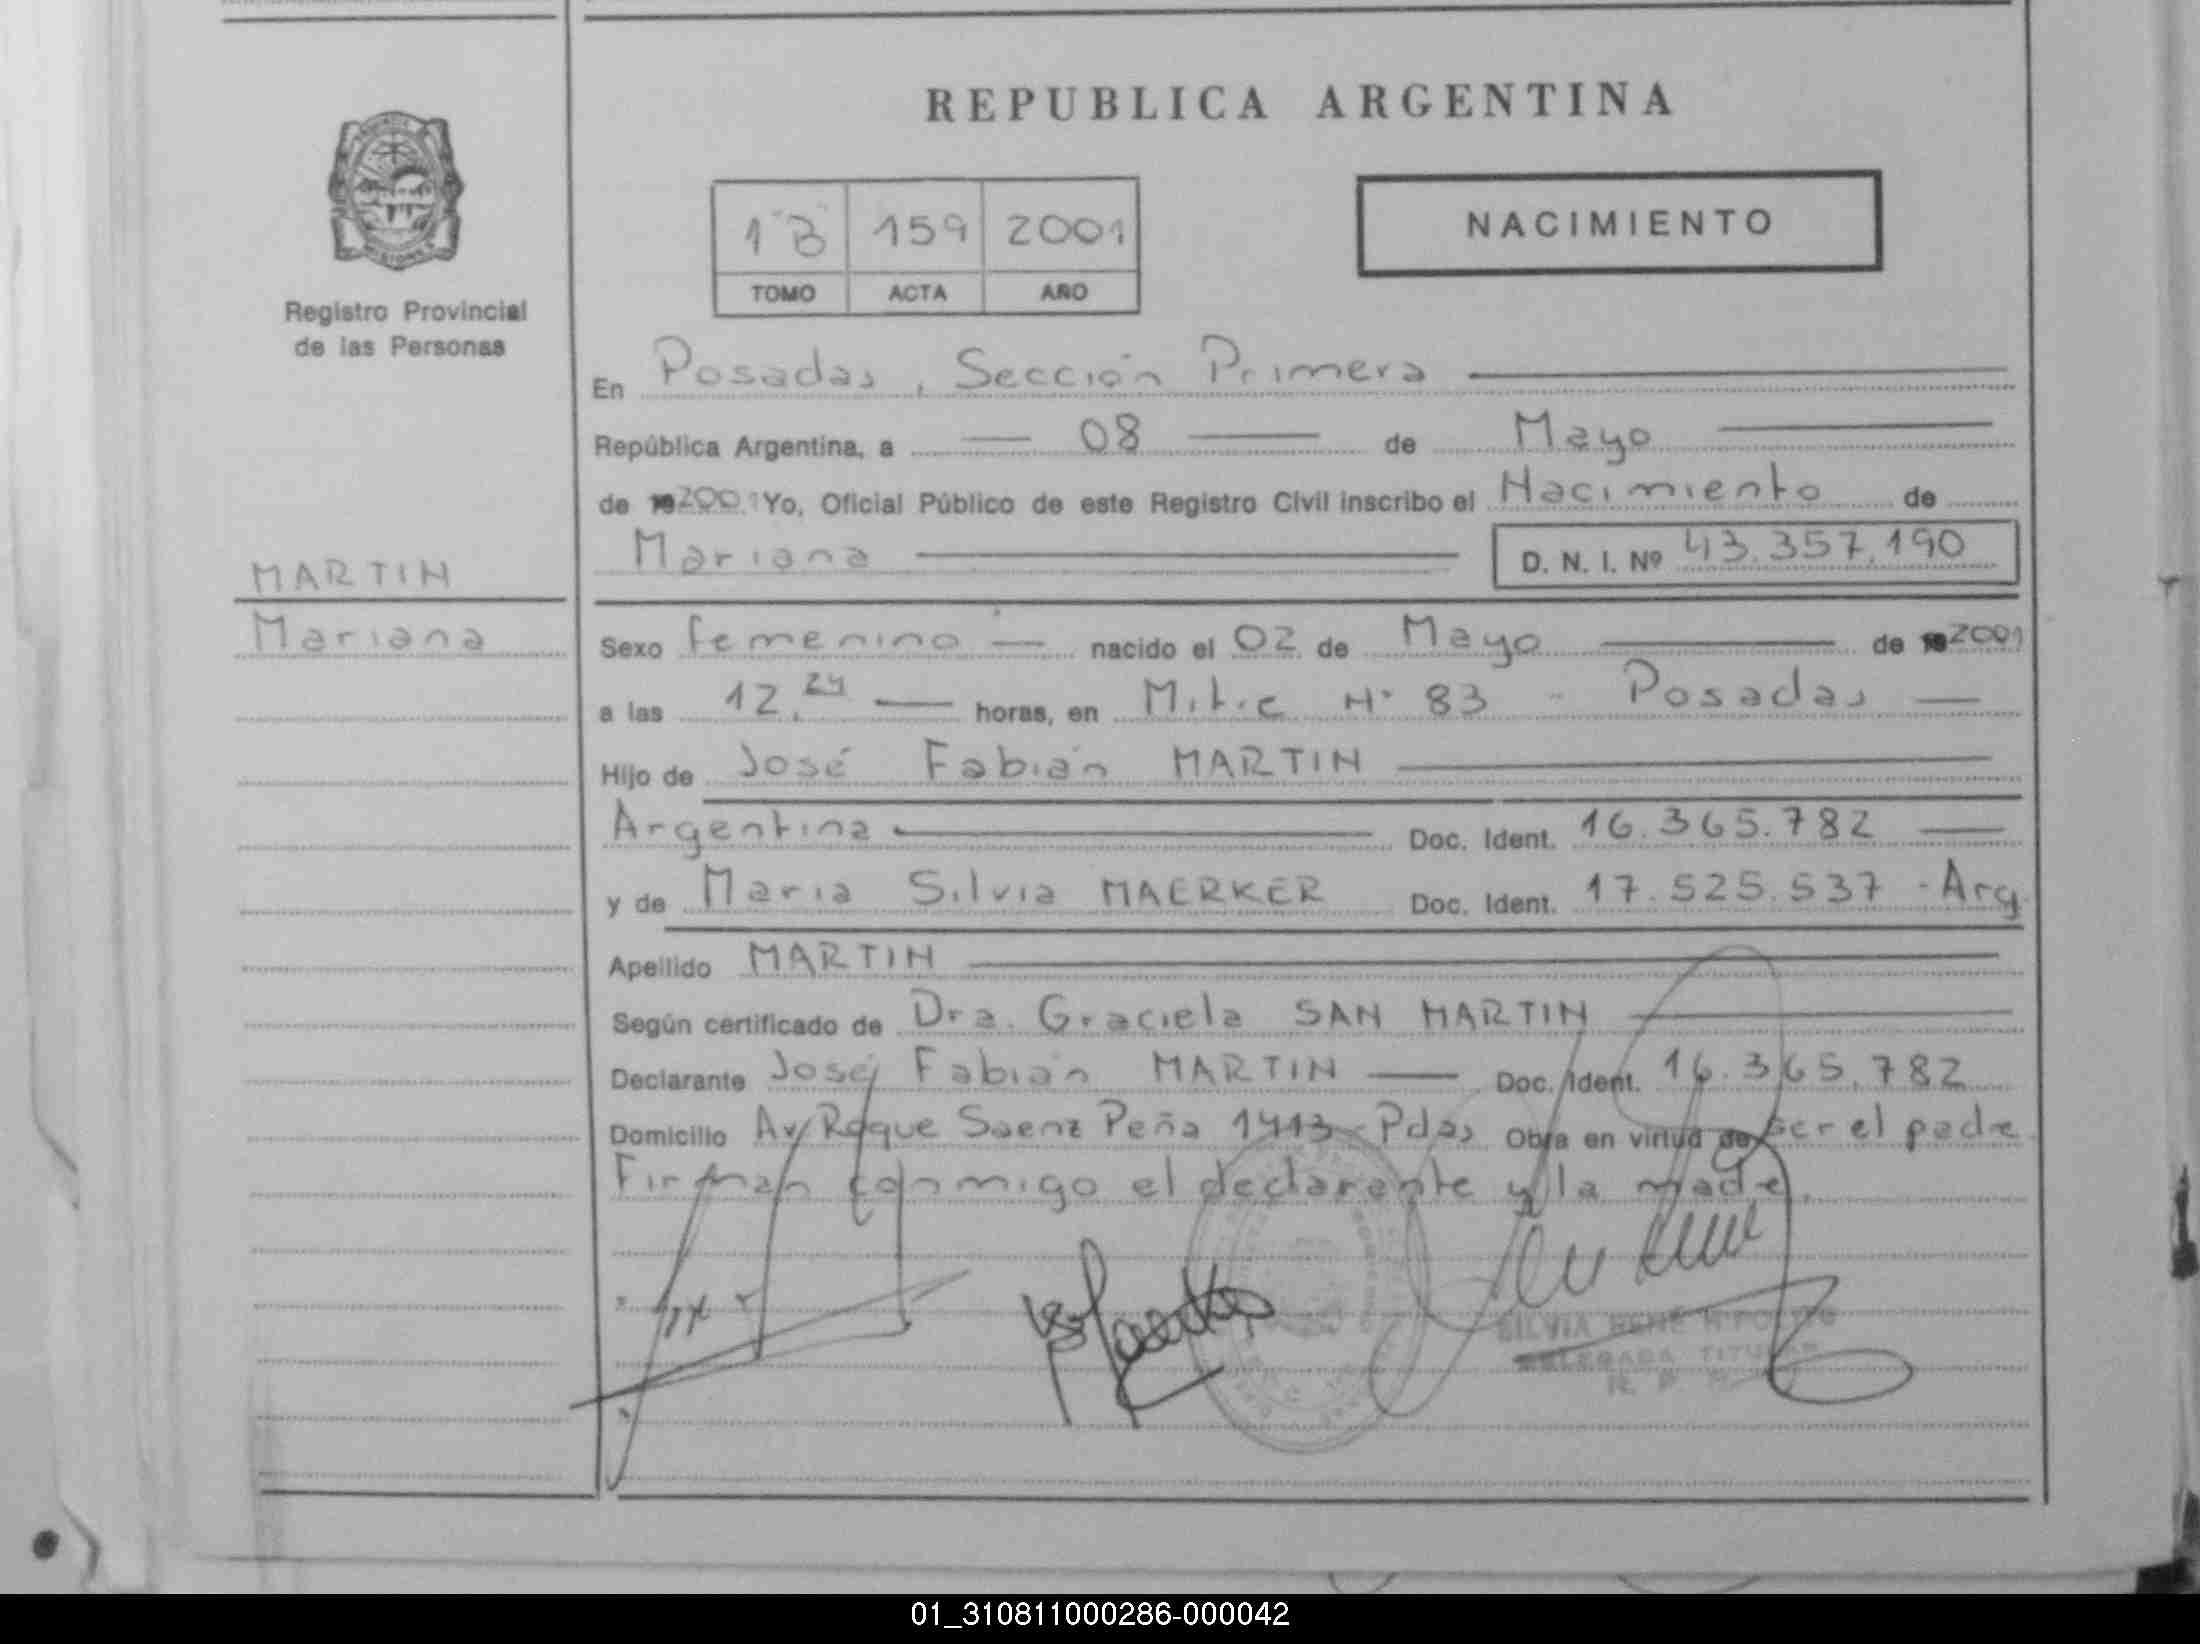 REPUBLICA ARGENTINA
1 "B" 159 2001
TOMO ACTA AÑO
NACIMIENTO
Registro Provincial
de las Personas
En Posadas, Sección Primera
República Argentina, a 08 de Mayo
de 19 2001 Yo, Oficial Público de este Registro Civil inscribo el Nacimiento de
Mariana D. N. I. Nº 43.357.190
MARTIN
Mariana
Sexo femenino nacido el 02 de Mayo de 19 2001
a las 12.24 horas, en Mitre Nº 83 - Posadas
Hijo de José Fabián MARTIN
Argentina Doc. Ident. 16.365.782
y de Maria Silvia MAERKER Doc. Ident. 17.525.537 - Arg
Apellido MARTIN
Según certificado de Dra. Graciela SAN MARTIN
Declarante José Fabián MARTIN Doc. Ident. 16.365.782
Domicilio Av Roque Saenz Peña 1413 - Pdas Obra en virtud de ser el padre.
Firman conmigo el declarante y la madre.
SILVIA RENÉ HIPOLITO
DELEGADA TITULAR
01_310811000286-000042